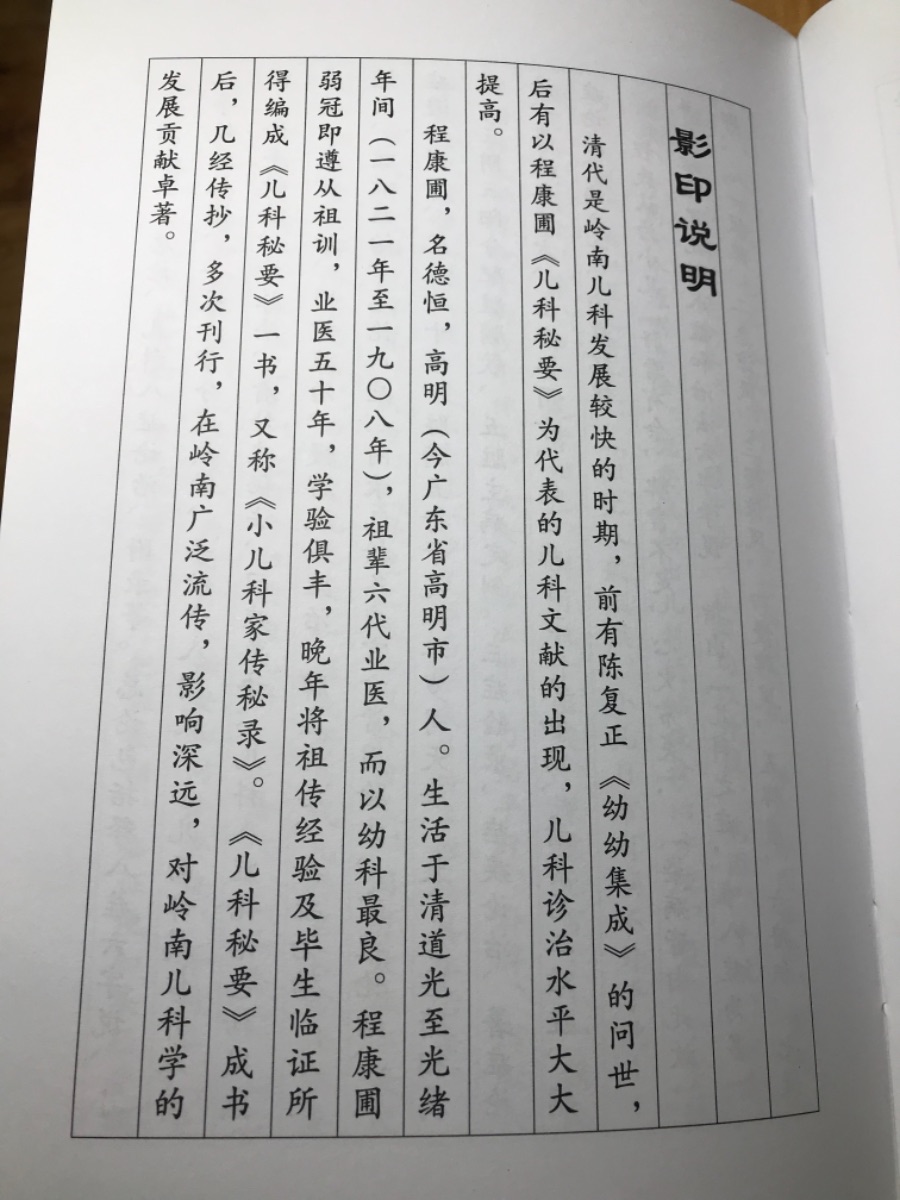 影印说明
清代是岭南儿科发展较快的时期，前有陈复正《幼幼集成》的问世，
后有以程康圃《儿科秘要》为代表的儿科文献的出现，儿科诊治水平大大
提高。
程康圃，名德恒，高明（今广东省高明市）人。生活于清道光至光绪
年间（一八二一年至一九〇八年），祖辈六代业医，而以幼科最良。程康圃
弱冠即遵从祖训，业医五十年，学验俱丰，晚年将祖传经验及毕生临证所
得编成《儿科秘要》一书，又称《小儿科家传秘录》。《儿科秘要》成书
后，几经传抄，多次刊行，在岭南广泛流传，影响深远，对岭南儿科学的
发展贡献卓著。